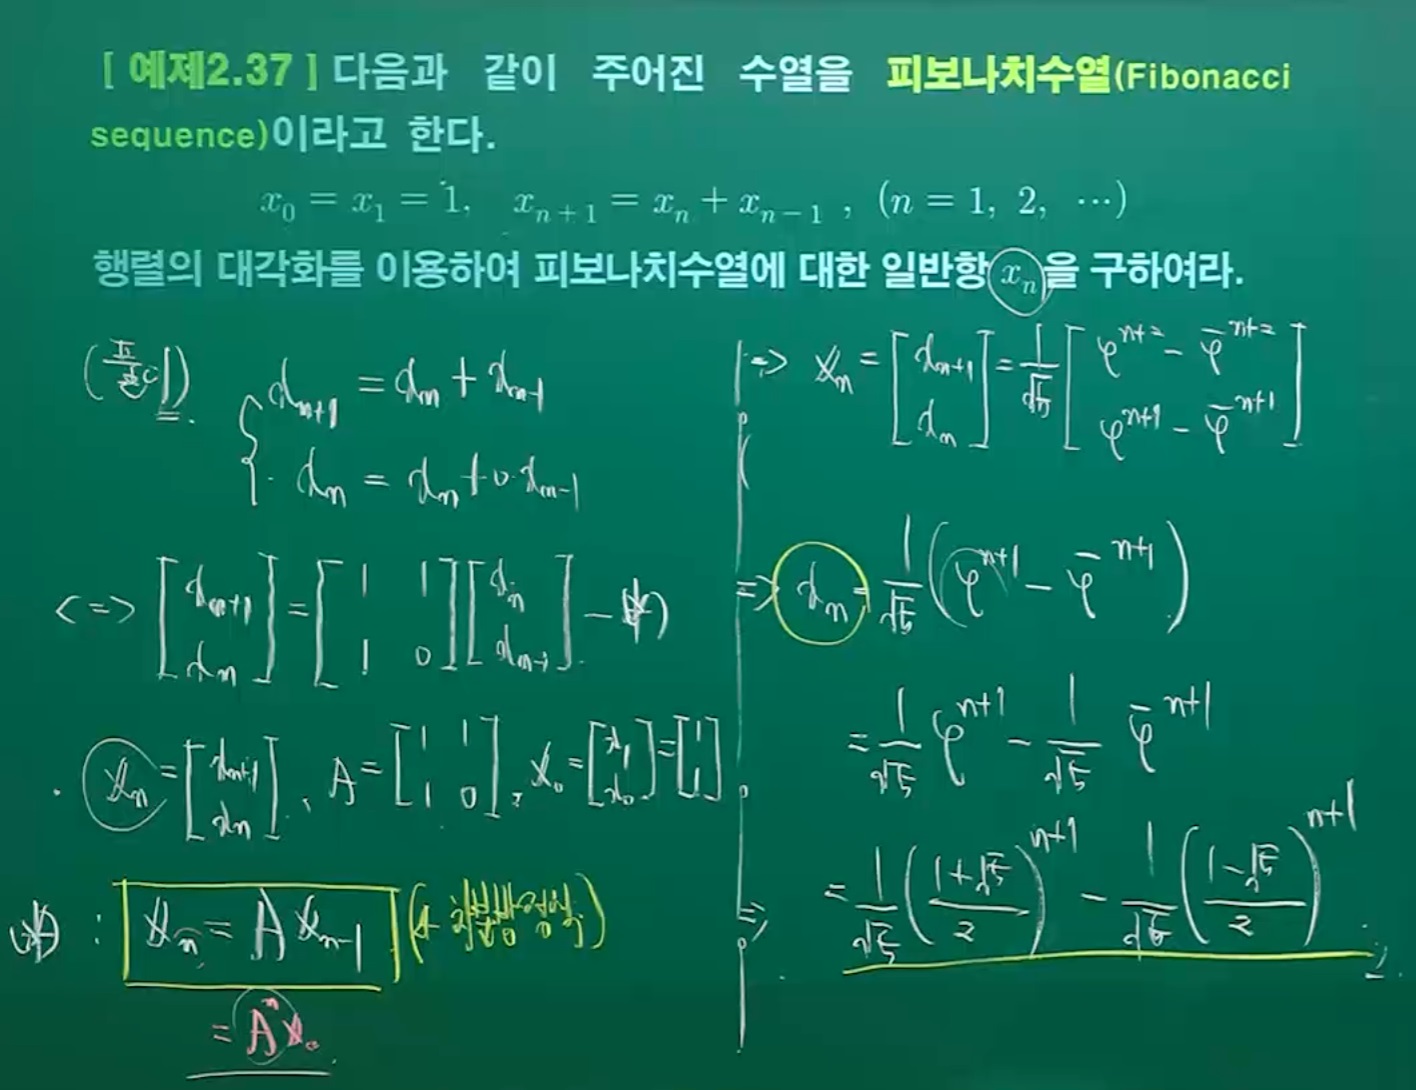 [ 예제2.37 ] 다음과 같이 주어진 수열을 피보나치수열(Fibonacci
sequence)이라고 한다.
x₀ = x₁ = 1, xₙ₊₁ = xₙ + xₙ₋₁ , (n = 1, 2, ⋯)
행렬의 대각화를 이용하여 피보나치수열에 대한 일반항 xₙ을 구하여라.
(풀이)
{ xₙ₊₁ = xₙ + xₙ₋₁
xₙ = xₙ + 0·xₙ₋₁
<=> [xₙ₊₁; xₙ] = [1 1; 1 0] [xₙ; xₙ₋₁] - (*)
. 𝕏ₙ = [xₙ₊₁; xₙ], A = [1 1; 1 0], 𝕏₀ = [x₁; x₀] = [1; 1]
(*) : 𝕏ₙ = A𝕏ₙ₋₁
= Aⁿ𝕏₀
=> 𝕏ₙ = [xₙ₊₁; xₙ] = 1/√5 [φⁿ⁺² - φ̄ⁿ⁺²; φⁿ⁺¹ - φ̄ⁿ⁺¹]
=> xₙ = 1/√5 (φⁿ⁺¹ - φ̄ⁿ⁺¹)
= 1/√5 φⁿ⁺¹ - 1/√5 φ̄ⁿ⁺¹
=> = 1/√5 ((1+√5)/2)ⁿ⁺¹ - 1/√5 ((1-√5)/2)ⁿ⁺¹